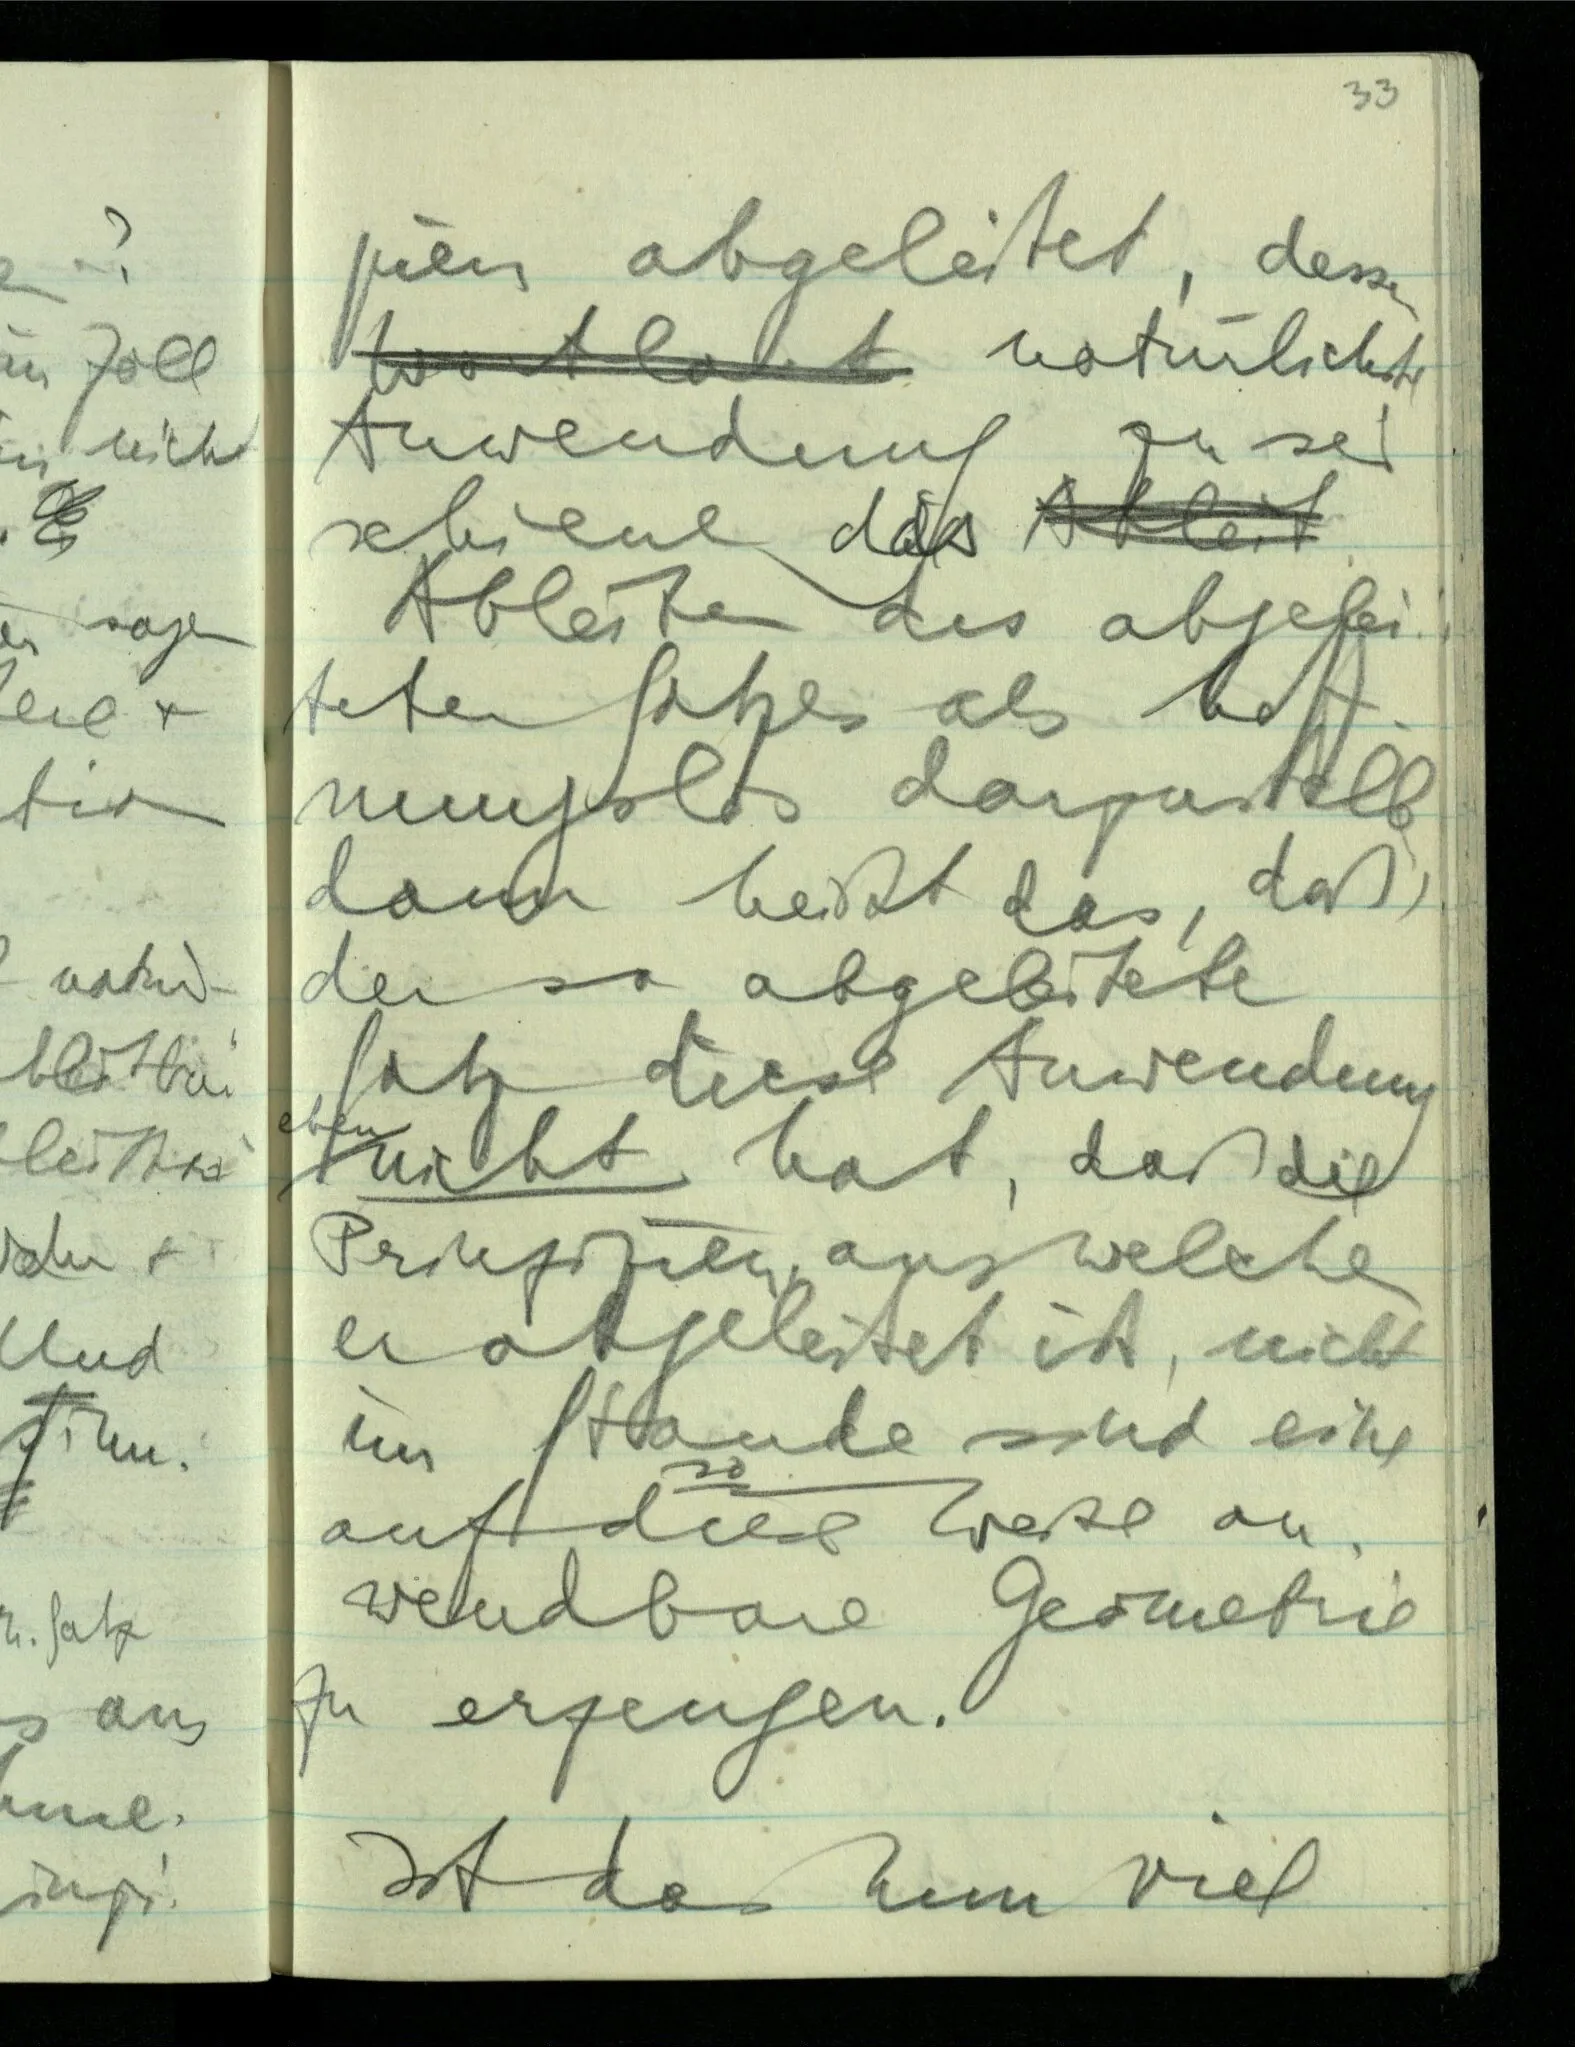 33
pien abgeleitet, dessen
Wortlaut natürlichste
Anwendung zu sei
schiene das Ableit
Ableiten des abgelei
teten Satzes als hoff-
nungslos darzustell
dann heißt das, daß
der so abgeleitete
Satz diese Anwendung
eben
nicht hat, daß die
Prinzipien, aus welchen
er abgeleitet ist, nicht
im Stande sind eine
so
auf diese Weise an-
wendbare Geometrie
zu erzeugen.
Ist das nun viel
?
Zoll
nicht
sagen
+
Und
Satz
aus